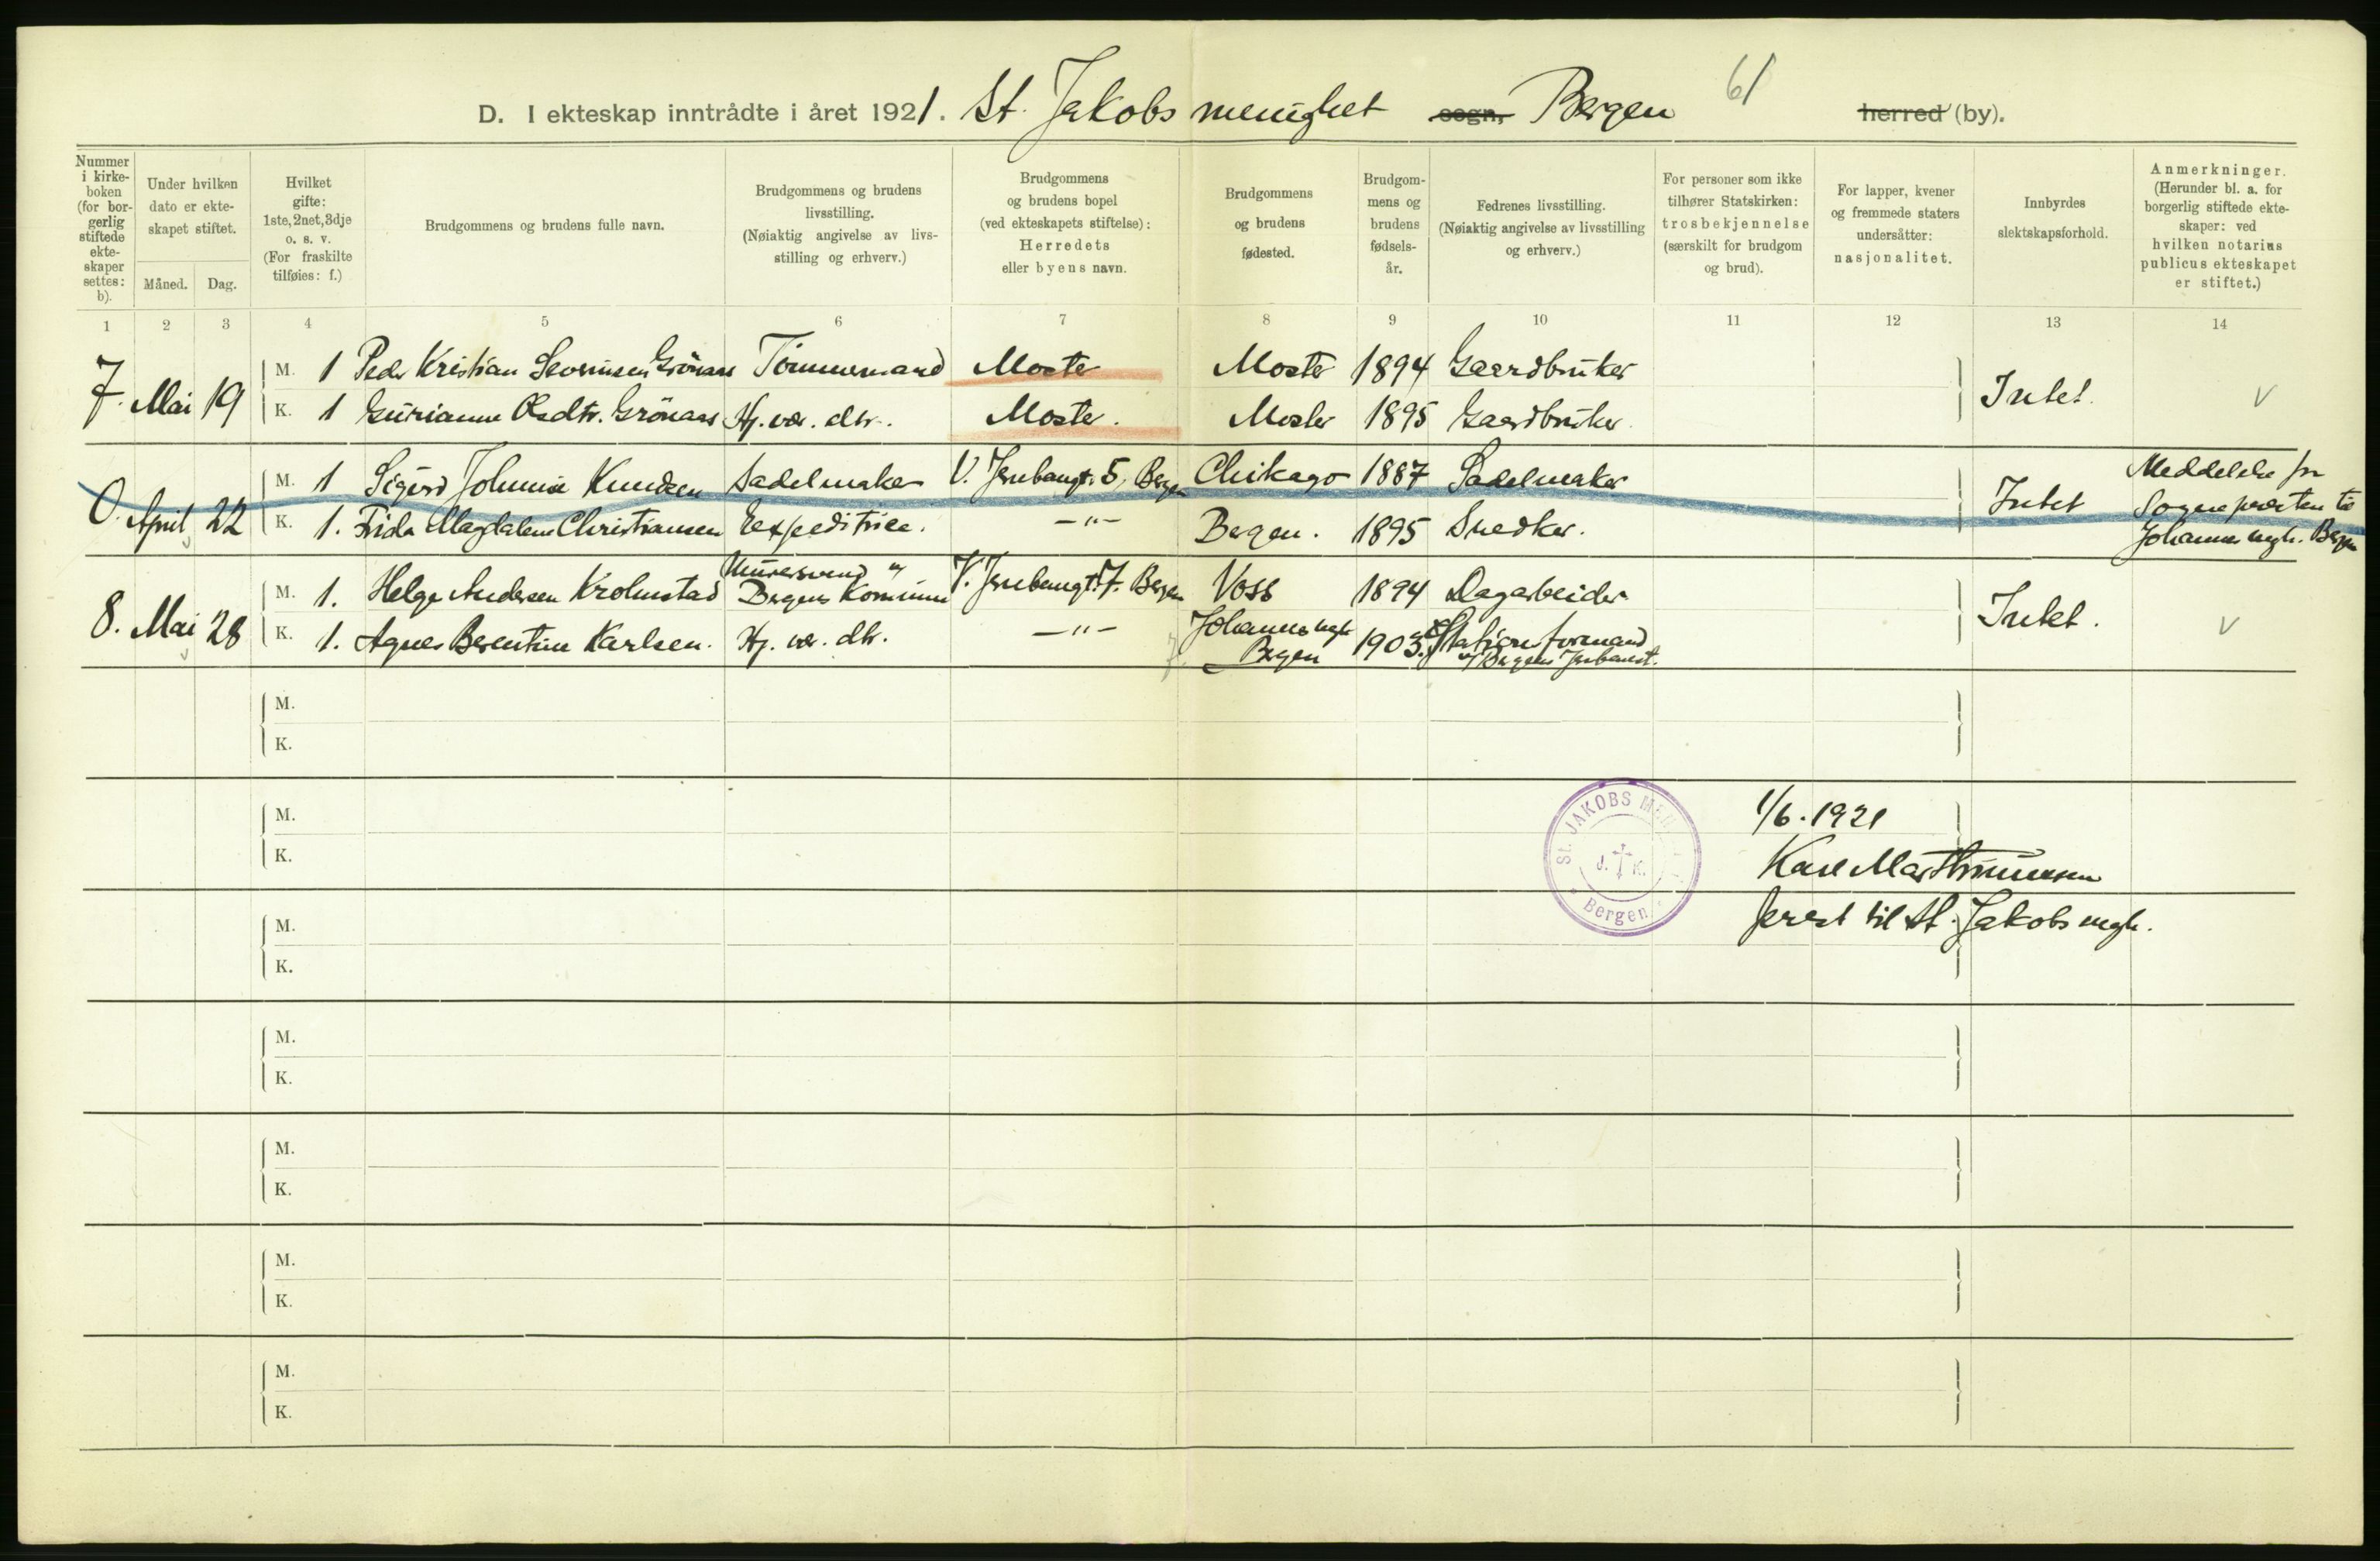 D. I ekteskap inntrådte i året 1921. St. Jakobs menighet sogn, Bergen herred (by).
61
Nummer i kirkeboken (for borgerlig stiftede ekteskaper settes: b).
Under hvilken dato er ekteskapet stiftet.
Måned.
Dag.
Hvilket gifte: 1ste, 2net, 3dje o. s. v. (For fraskilte tilføies: f.)
Brudgommens og brudens fulle navn.
Brudgommens og brudens livsstilling. (Nøiaktig angivelse av livsstilling og erhverv.)
Brudgommens og brudens bopel (ved ekteskapets stiftelse): Herredets eller byens navn.
Brudgommens og brudens fødested.
Brudgommens og brudens fødselsår.
Fedrenes livsstilling. (Nøiaktig angivelse av livsstilling og erhverv.)
For personer som ikke tilhører Statskirken: trosbekjennelse (særskilt for brudgom og brud).
For lapper, kvener og fremmede staters undersåtter: nasjonalitet.
Innbyrdes slektskapsforhold.
Anmerkninger. (Herunder bl. a. for borgerlig stiftede ekteskaper: ved hvilken notarius publicus ekteskapet er stiftet.)
1 2 3 4 5 6 7 8 9 10 11 12 13 14
7. Mai 19
M. 1 Peder Kristian Severinsen Grönaas Tömmermand Moster Moster 1894 Gaardbruker
K. 1 Gurianne Olsdtr. Grönaas Hj. vær. dtr. Moster. Moster 1895 Gaardbruker
Intet. V
0. April 22
M. 1 Sigurd Johannes Knudsen Sadelmaker V. Jernbangt. 5, Bergen Chikago 1887 Sadelmaker
K. 1. Frida Magdalene Christiansen Eexpeditrice. —"— Bergen. 1895 Snedker.
Intet
Meddelelse fra
Sognepresten til
Johannes mgh. Bergen
8. Mai 28
M. 1. Helge Andersen Krolmstad Murersvend v/ Bergens Kommune V. Jernbangt. 7. Bergen Voss 1894 Dagarbeider
K. 1. Agnes Berentine Karlsen. Hj. vær. dtr. —"— Johannes mgh Bergen 1903. Stationsformand v/ Bergens Jernbanest.
Intet. V
M.
K.
M.
K.
St. JAKOBS MENIGHET
J. K.
Bergen
1/6. 1921
Karl Marthinussen
prest til St. Jakobs mgh.
M.
K.
M.
K.
M.
K.
M.
K.
M.
K.